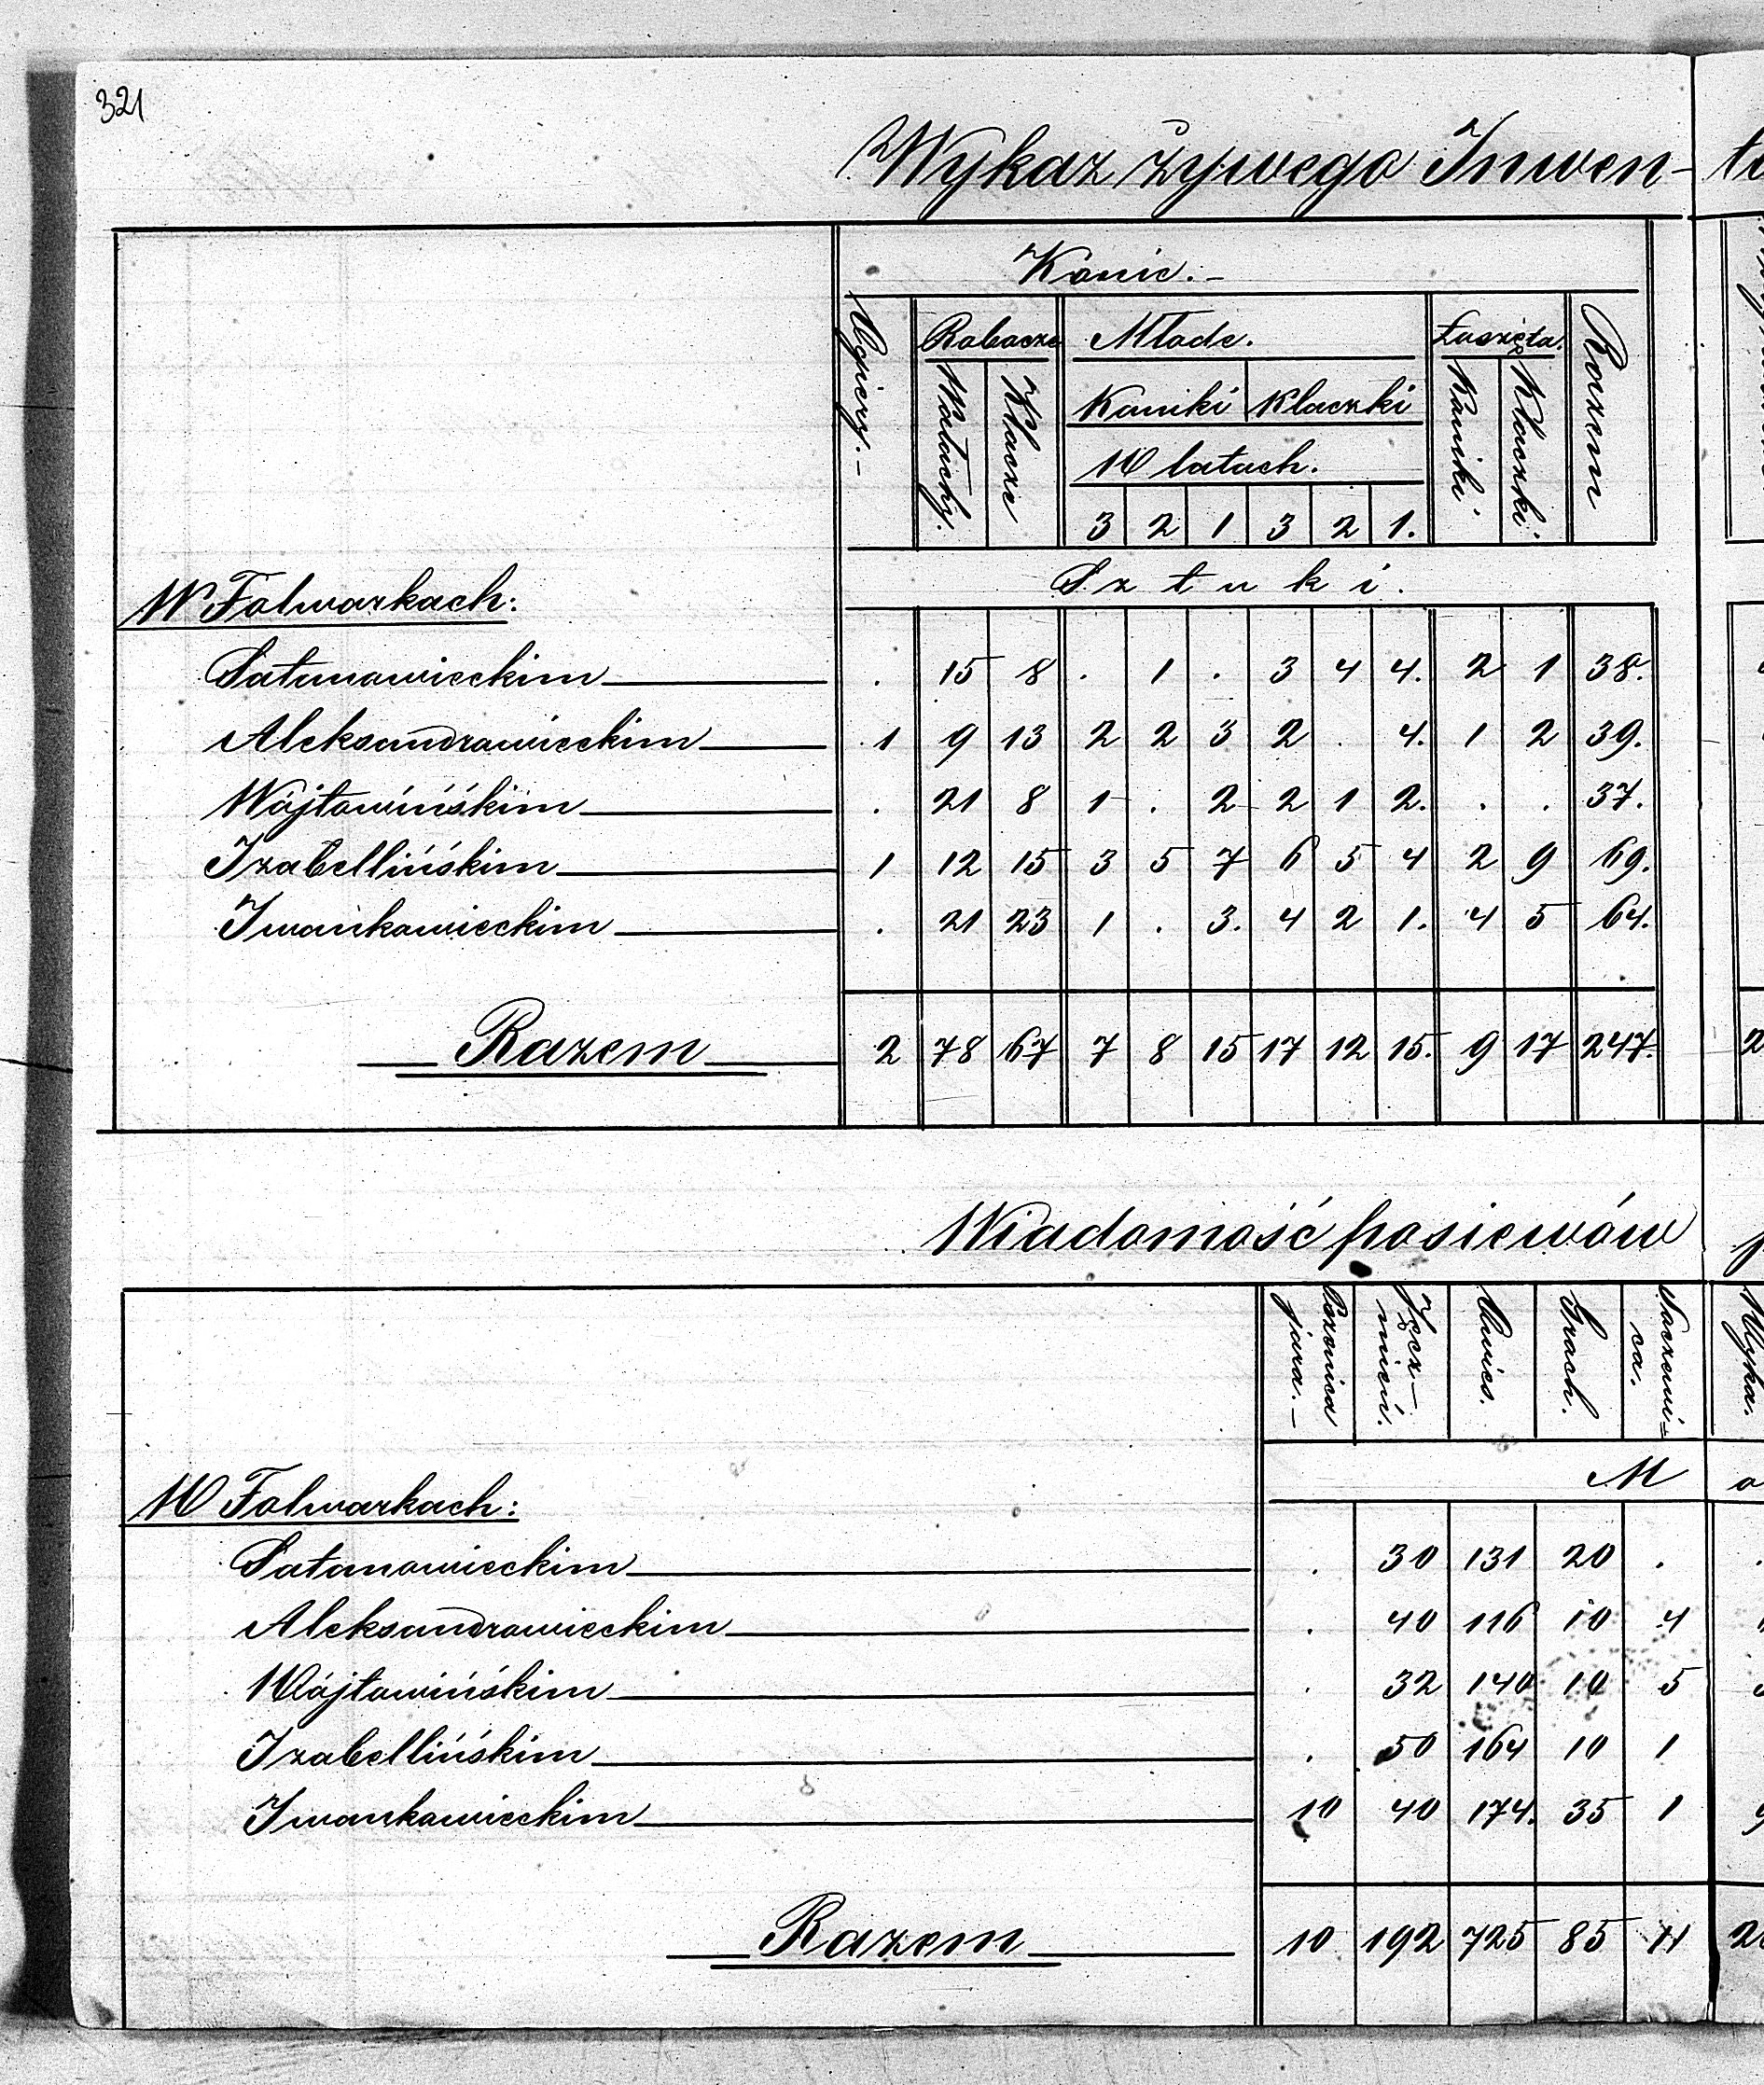 321
Wykaz żywego Inwen- ta
Konie.-
Ogiery.- Robocze Młode. Łoszęta. Razem
Wałachy. Klacze Koniki Klaczki Koniki Klaczki.
W latach.
3 2 1 3 2 1.
Sztuki.
W Folwarkach:
Satanowieckim . 15 8 . 1 . 3 4 4. 2 1 38.
Aleksandrowieckim 1 9 13 2 2 3 2 . 4. 1 2 39.
Wójtowińskim . 21 8 1 . 2 2 1 2. . . 37.
Izabellińskim 1 12 15 3 5 7 6 5 4 2 9 69.
Iwankowieckim . 21 23 1 . 3. 4 2 1. 4 5 64.
Razem 2 78 67 7 8 15 17 12 15. 9 17 247. 2
Wiadomość posiewów
Pszenica jara.- Jęcz-mień. Owies. Groch. Soczewi=ca. Wyka.
M o
W Folwarkach:
Satanowieckim . 30 131 20 . .
Aleksandrowieckim . 40 116 10 4
Wójtowińskim . 32 140 10 5
Izabellińskim . 50 164 10 1
Iwankowieckim 10 40 174. 35 1
Razem 10 192 725 85 11 2